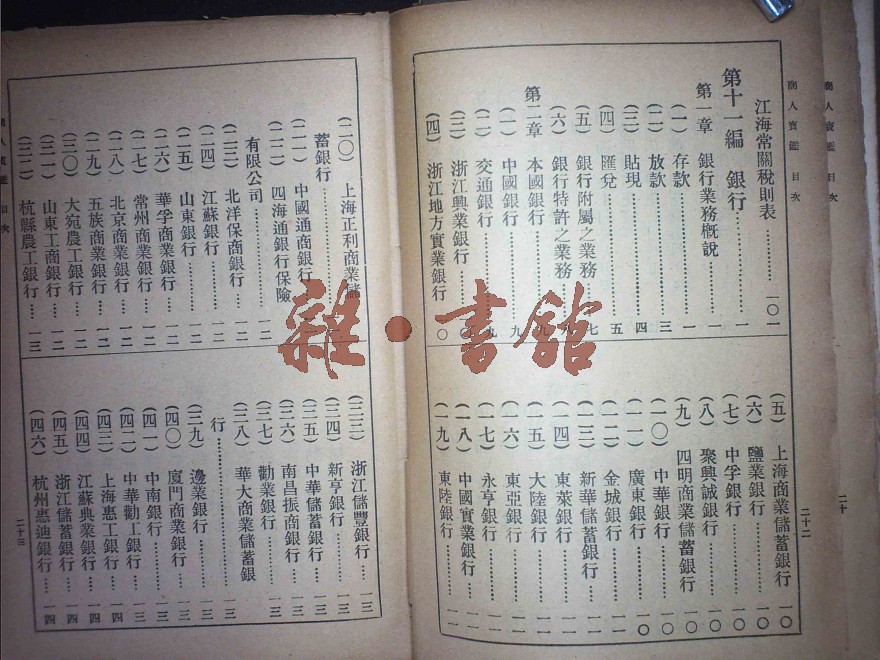 商人寶鑑 目次
二十二
江海常關稅則表…………一〇一
第十一編 銀行…………一
第一章 銀行業務概說…………一
(一) 存款…………一
(二) 放款…………三
(三) 貼現…………四
(四) 匯兌…………五
(五) 銀行附屬之業務…………七
(六) 銀行特許之業務…………八
第二章 本國銀行…………九
(一) 中國銀行…………九
(二) 交通銀行…………九
(三) 浙江興業銀行
(四) 浙江地方實業銀行
(五) 上海商業儲蓄銀行…一〇
(六) 鹽業銀行…………一〇
(七) 中孚銀行…………一〇
(八) 聚興誠銀行…………一〇
(九) 四明商業儲蓄銀行…一〇
(一〇) 中華銀行…………一〇
(一一) 廣東銀行…………一〇
(一二) 金城銀行…………一一
(一三) 新華儲蓄銀行…………一一
(一四) 東萊銀行…………一一
(一五) 大陸銀行…………一一
(一六) 東亞銀行…………一一
(一七) 永亨銀行…………一一
(一八) 中國實業銀行…………一一
(一九) 東陸銀行…………一一
(二〇) 上海正利商業儲
蓄銀行…………
(二一) 中國通商銀行
(二二) 四海通銀行保險
有限公司…………一二
(二三) 北洋保商銀行…一二
(二四) 江蘇銀行…………一二
(二五) 山東銀行…………一二
(二六) 華孚商業銀行…一二
(二七) 常州商業銀行…一二
(二八) 北京商業銀行…一二
(二九) 五族商業銀行…一二
(三〇) 大宛農工銀行…一二
(三一) 山東工商銀行…一二
(三二) 杭縣農工銀行…一三
(三三) 浙江儲豐銀行…一三
(三四) 新亨銀行…………一三
(三五) 中華儲蓄銀行…一三
(三六) 南昌振商銀行…一三
(三七) 勸業銀行…………一三
(三八) 華大商業儲蓄銀
行…………一三
(三九) 邊業銀行…………一三
(四〇) 廈門商業銀行…一三
(四一) 中南銀行…………一三
(四二) 中華勸工銀行…一三
(四三) 上海惠工銀行…一四
(四四) 江蘇典業銀行…一四
(四五) 浙江儲蓄銀行…一四
(四六) 杭州惠迪銀行…一四
商人寶鑑 目次
二十三
雜·書館